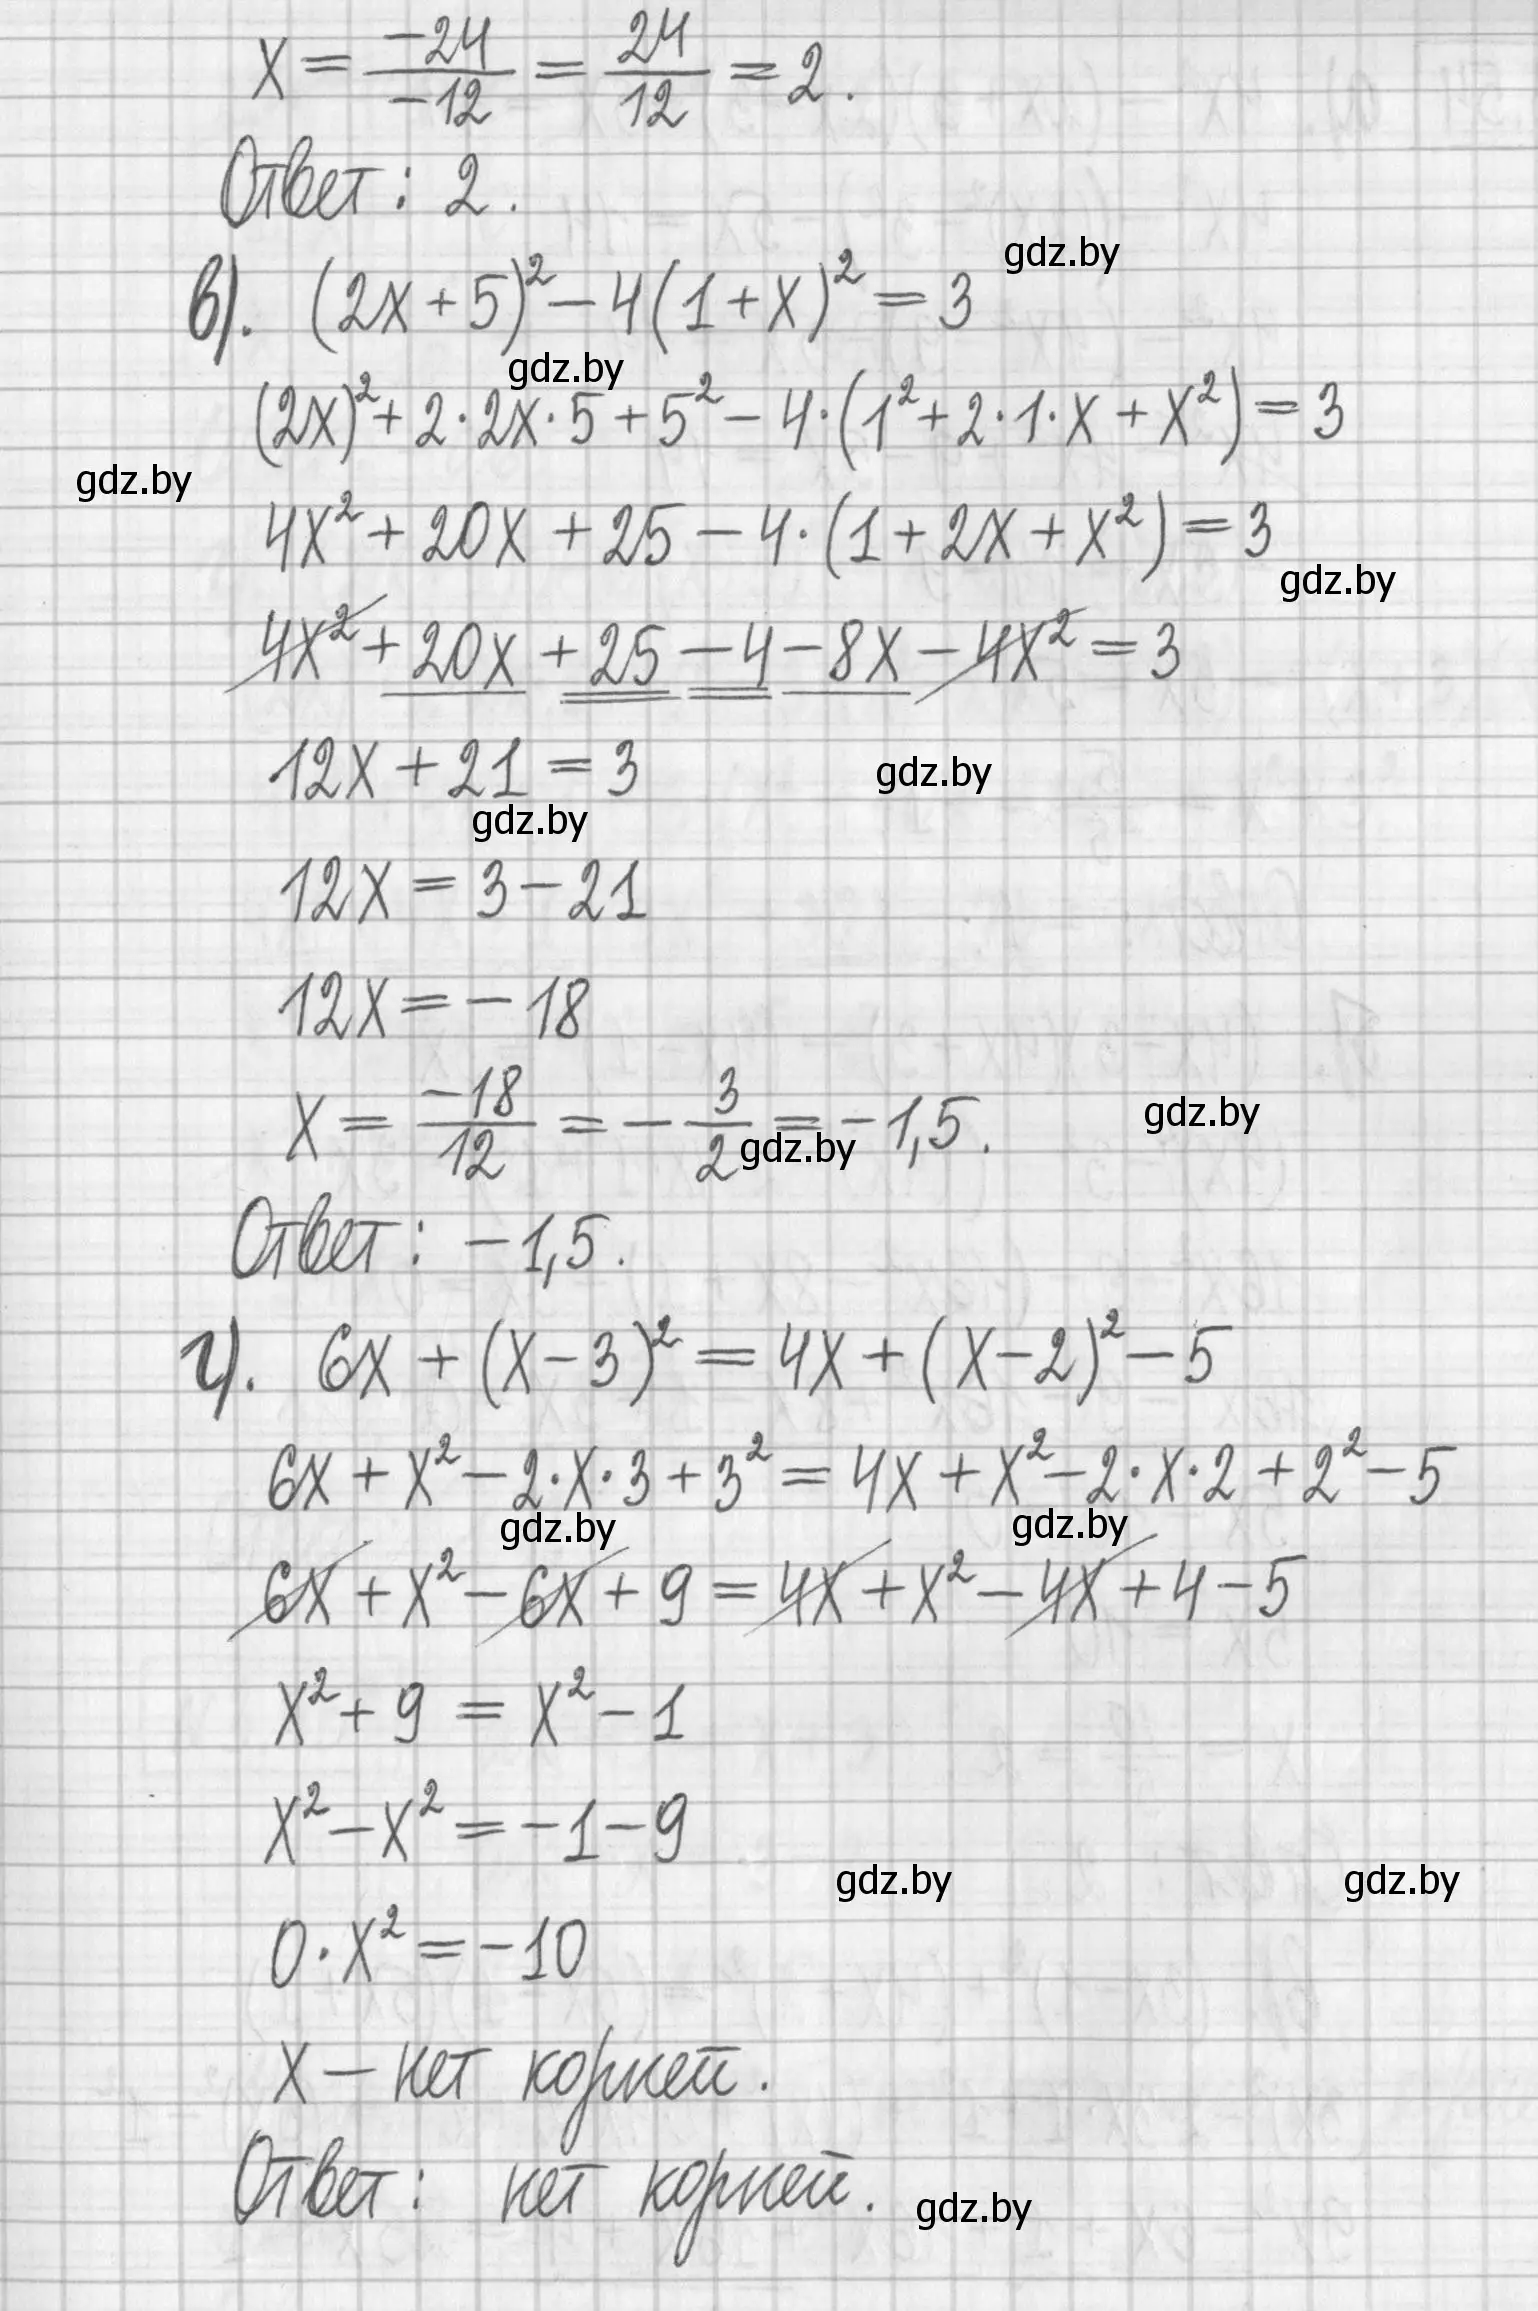 x = -24/-12 = 24/12 = 2.
Ответ: 2.
gdz.by
в). (2x+5)² – 4(1+x)² = 3
gdz.by
(2x)² + 2·2x·5 + 5² – 4·(1² + 2·1·x + x²) = 3
gdz.by
4x² + 20x + 25 – 4·(1 + 2x + x²) = 3
gdz.by
4x² + 20x + 25 – 4 – 8x – 4x² = 3
12x + 21 = 3
gdz.by
gdz.by
12x = 3 – 21
12x = –18
x = -18/12 = – 3/2 = –1,5.
gdz.by
gdz.by
Ответ: –1,5.
г). 6x + (x–3)² = 4x + (x–2)² – 5
6x + x² – 2·x·3 + 3² = 4x + x² – 2·x·2 + 2² – 5
gdz.by
gdz.by
6x + x² – 6x + 9 = 4x + x² – 4x + 4 – 5
x² + 9 = x² – 1
x² – x² = –1 – 9
gdz.by
gdz.by
0·x² = –10
x – нет корней.
Ответ: нет корней.
gdz.by